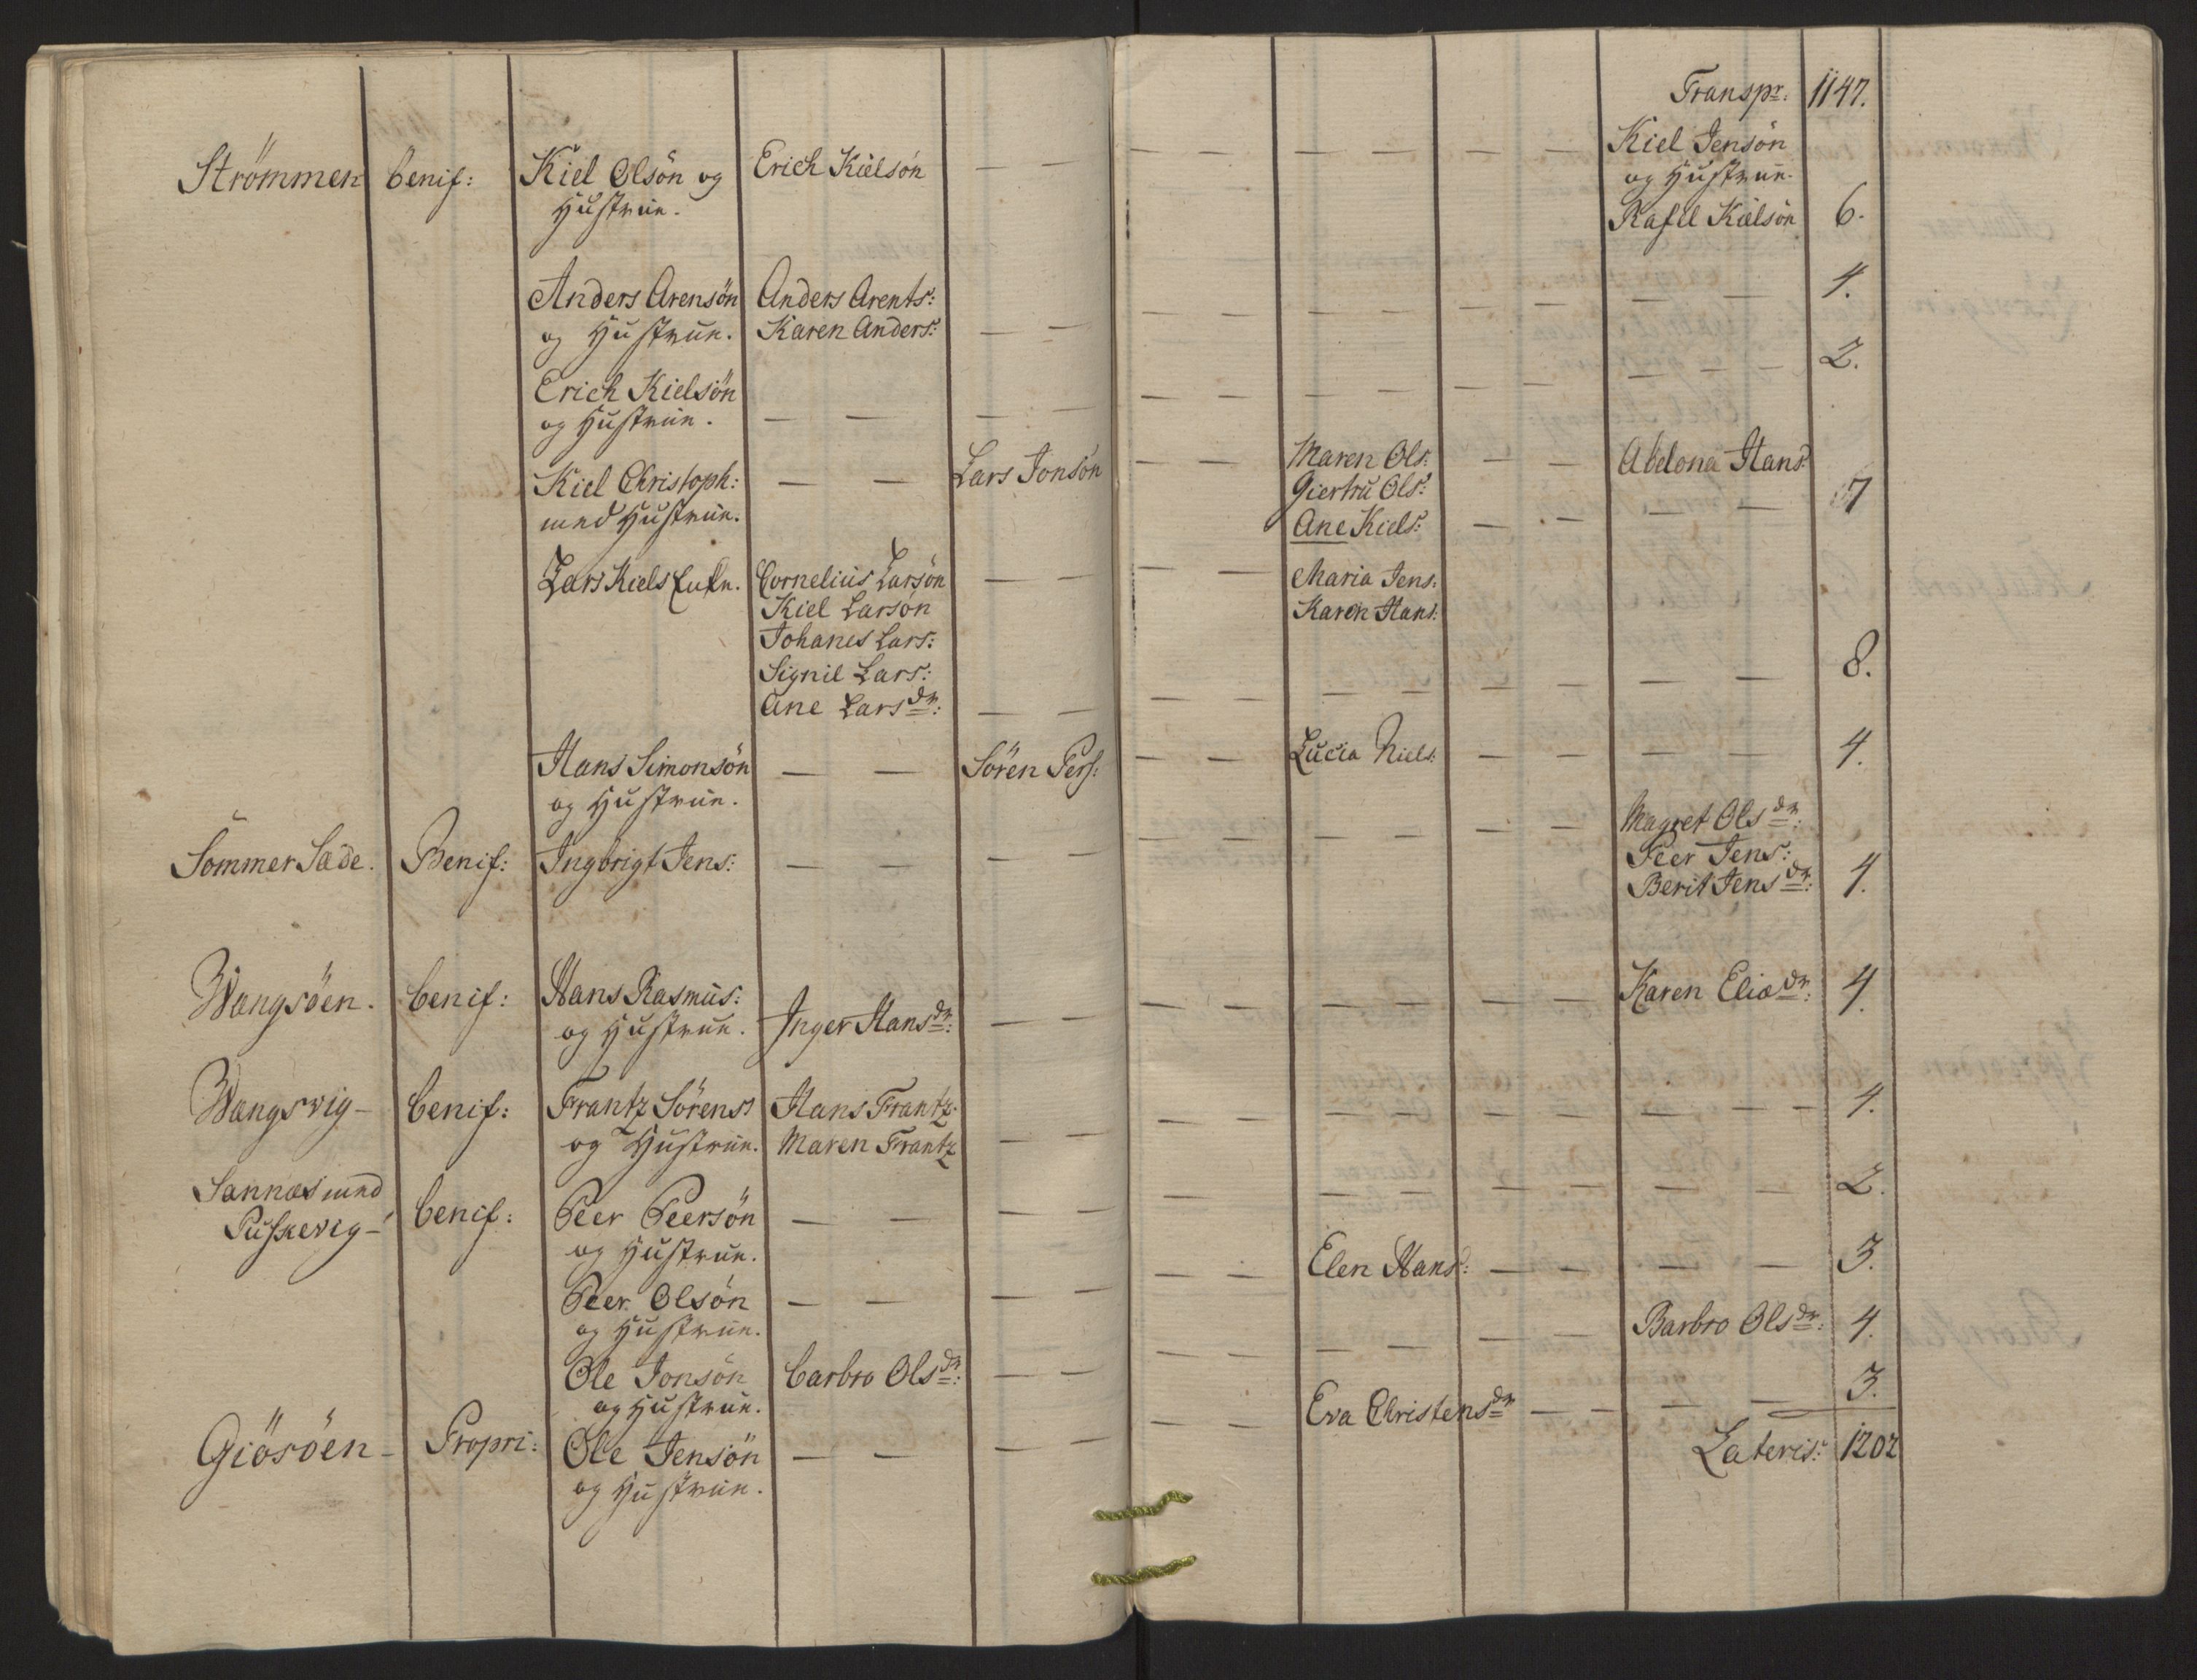 Transpr: 1147.
Strömmen benif: Kiel Olsön og Erich Kielsön — — — — — — — — Kiel Jensön
Hustrue. og Hustrue.
Rafel Kielsön 6.
Anders Arensön Anders Arents: — — 4.
og Hustrue. Karen Anders: — — — — — — — —
Erich Kielsön — — 2.
og Hustrue. — — — — — — — — — —
Kiel Christoph: — — Lars Jonsön — — Maren Ols: — — Abelona Hans:
med Hustrue. Giertru Ols: 7
Ane Kiels: — — — —
Lars Kiels Enke. Cornelius Larsön — — — — Maria Jens:
Kiel Larsön Karen Hans:
Johanes Lars:
Signil Lars: 8.
Ane Lars dr: — — — — — — — — — —
Hans Simonsön — — Sören Pers: — — Lucia Niels: — — — — 4.
og Hustrue.
Magret Ols dr:
Sommer Sæde. Benif: Ingbrigt Jens: — — — — — — — — — — Peer Jens:
Berit Jens dr: 4.
Wangsöen. benif: Hans Rasmus: — — — — — — Karen Eliæ dr: 4.
og Hustrue. Inger Hans dr: — —
Wangsvig — benif: Frantz Sörens Hans Frantz: — — — — — — — — 4.
og Hustrue. Maren Frantz — —
Sannæs med
Puskevig — benif: Peer Peersön — — — — — — — — — — — — 2.
og Hustrue.
Peer Olsön — — — — — — Elen Hans: — — — — 3.
og Hustrue.
Ole Jonsön barbro Ols dr: — — — — — — — — Barbro Ols dr: 4.
og Hustrue.
Giösöen — Propri: Ole Jensön — — — — — — Eva Christens dr — — — — 3.
og Hustrue.
Lateris: 1202